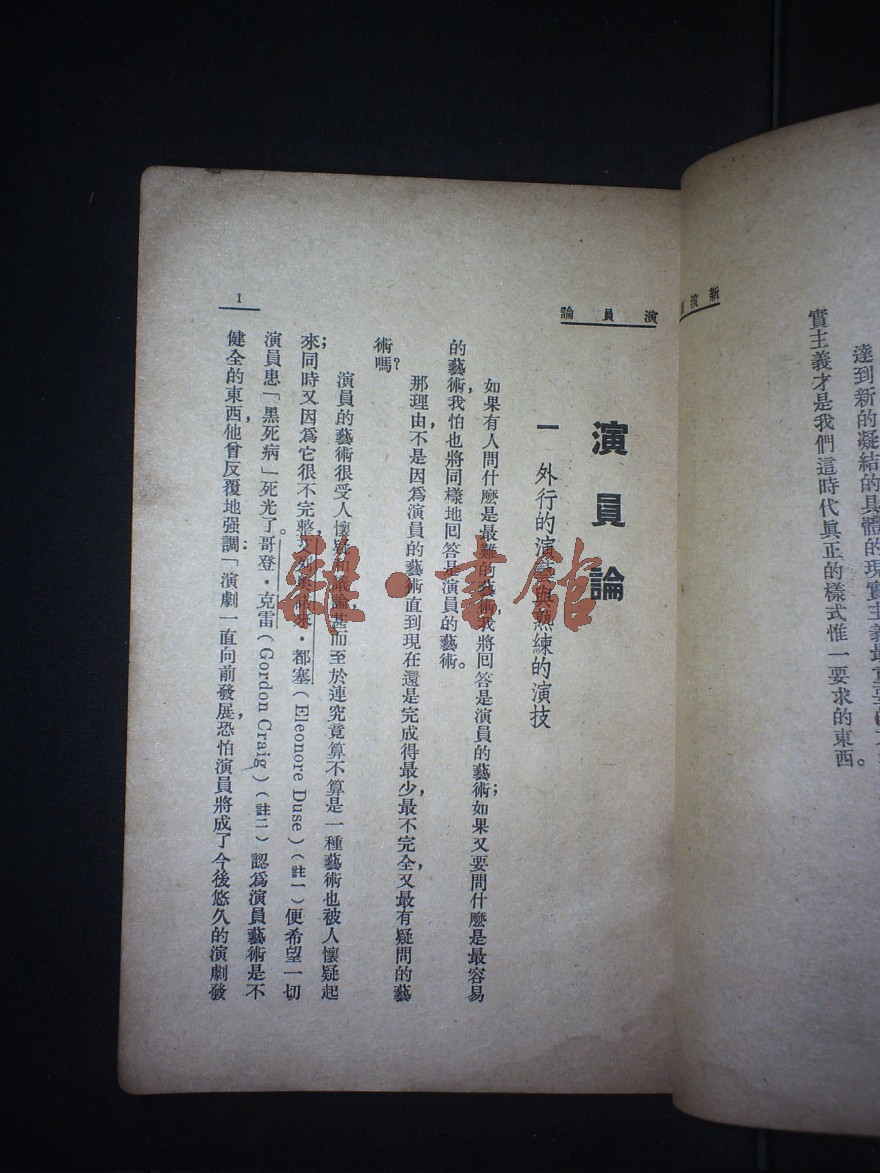 新演
達到新的凝結的具體的現實主義最重要的
實主義才是我們這時代眞正的樣式惟一要求的東西。
演員論
演員論
一 外行的演藝與熟練的演技
如果有人問什麼是最難的藝術,我將回答是演員的藝術;如果又要問什麼是最容易
的藝術,我怕也將同樣地回答是演員的藝術。
那理由,不是因爲演員的藝術直到現在還是完成得最少,最不完全,又最有疑問的藝
術嗎?
演員的藝術很受人懷疑和議論,甚而至於連究竟算不算是一種藝術也被人懷疑起
來;同時又因爲它很不完整,·都塞(Eleonore Duse)(註一)便希望一切
演員患「黑死病」死光了。哥登·克雷(Gordon Craig)(註二)認爲演員藝術是不
健全的東西,他曾反覆地强調:「演劇一直向前發展,恐怕演員將成了今後悠久的演劇發
1
雜·書館